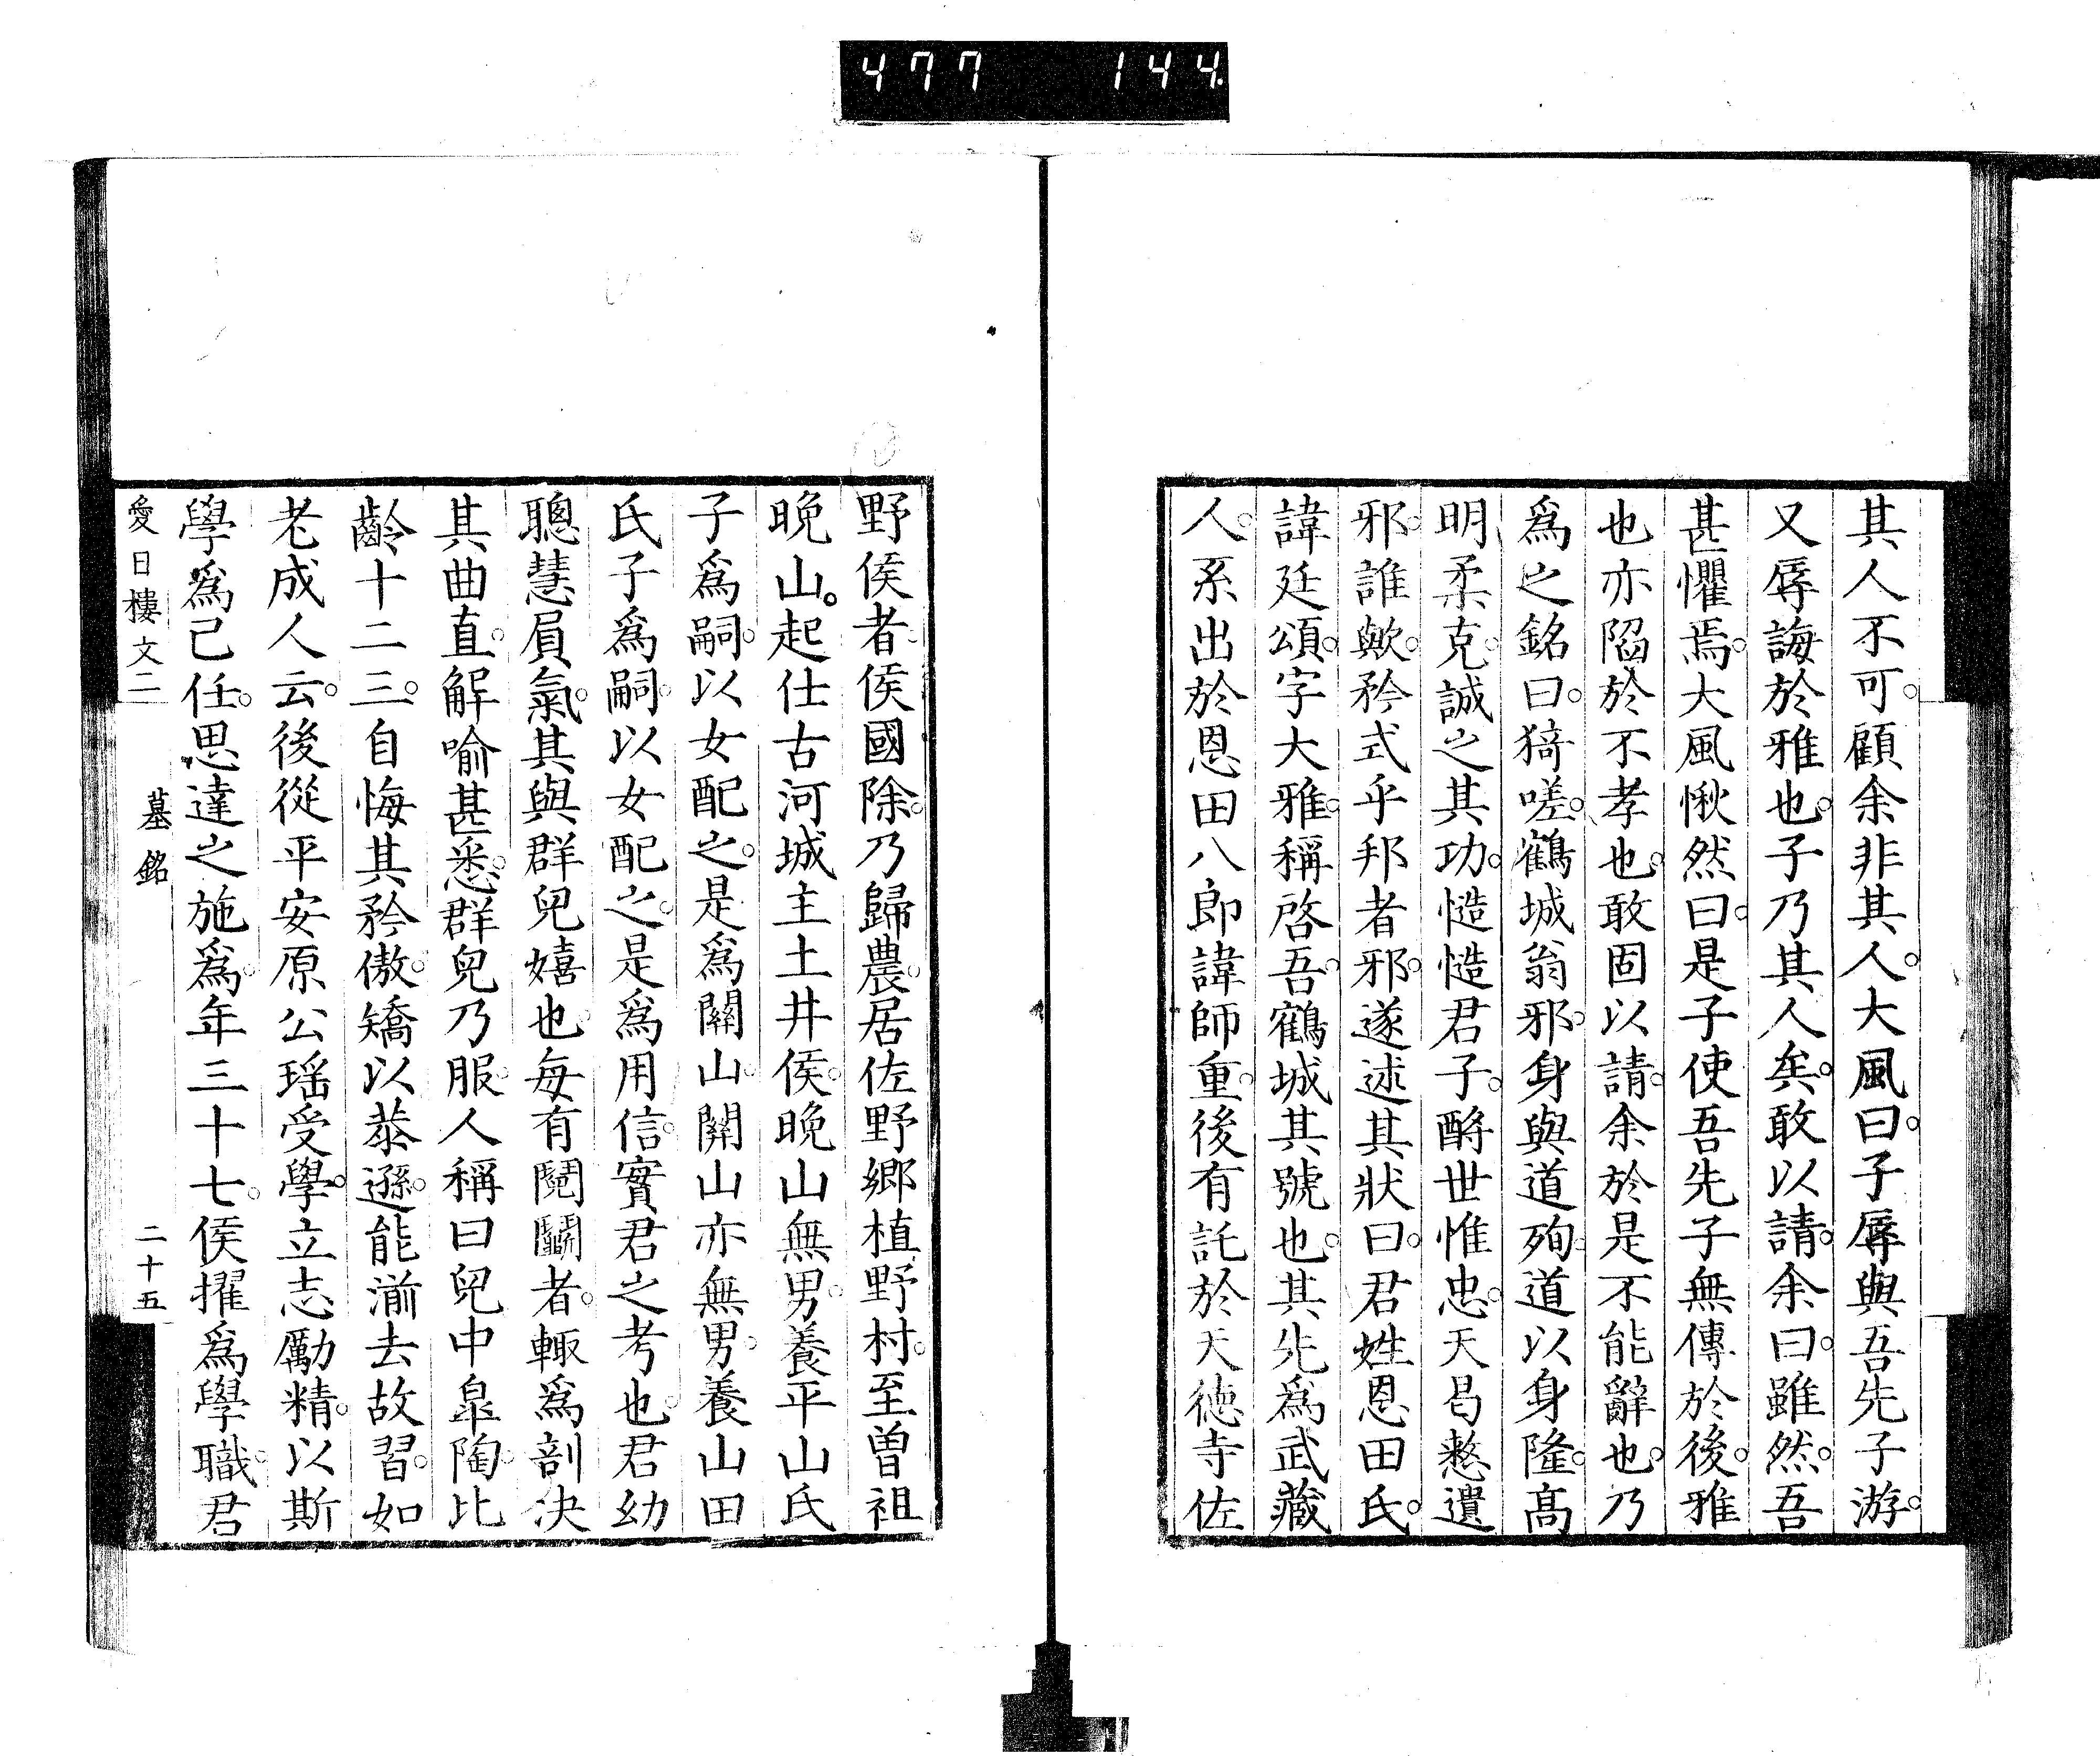 477 144.
其人不可。顧余非其人。大風曰。子辱與吾先子游。
又辱誨於雅也。子乃其人矣。敢以請。余曰。雖然。吾
甚懼焉。大風愀然曰。是子使吾先子無傳於後。雅
也亦陷於不孝也。敢固以請。余於是不能辭也。乃
爲之銘曰。猗嗟。鶴城翁邪。身與道殉。道以身隆。高
明柔克。誠之其功。慥慥君子。酹世惟忠。天曷憖遺
邪。誰歟。矜式乎邦者邪。遂述其狀曰。君姓恩田氏。
諱廷頌。字大雅。稱啓吾。鶴城其號也。其先爲武藏
人。系出於恩田八郎諱師重。後有託於天德寺佐
野侯者。侯國除。乃歸農。居佐野郷植野村。至曽祖
晩山。起仕古河城主土井侯。晩山無男。養平山氏
子爲嗣。以女配之。是爲關山。關山亦無男。養山田
氏子爲嗣。以女配之。是爲用信。實君之考也。君幼
聰慧屓氣。其與群兒嬉也。毎有鬩鬭者。輙爲剖決
其曲直。解喻甚悉。群兒乃服。人稱曰兒中臯陶。比
齡十二三。自悔其矜傲。矯以恭遜。能湔去故習。如
老成人云。後從平安原公瑤受學。立志勵精。以斯
學爲己任。思達之施爲。年三十七。侯擢爲學職。君
愛日樓文二 墓銘 二十五